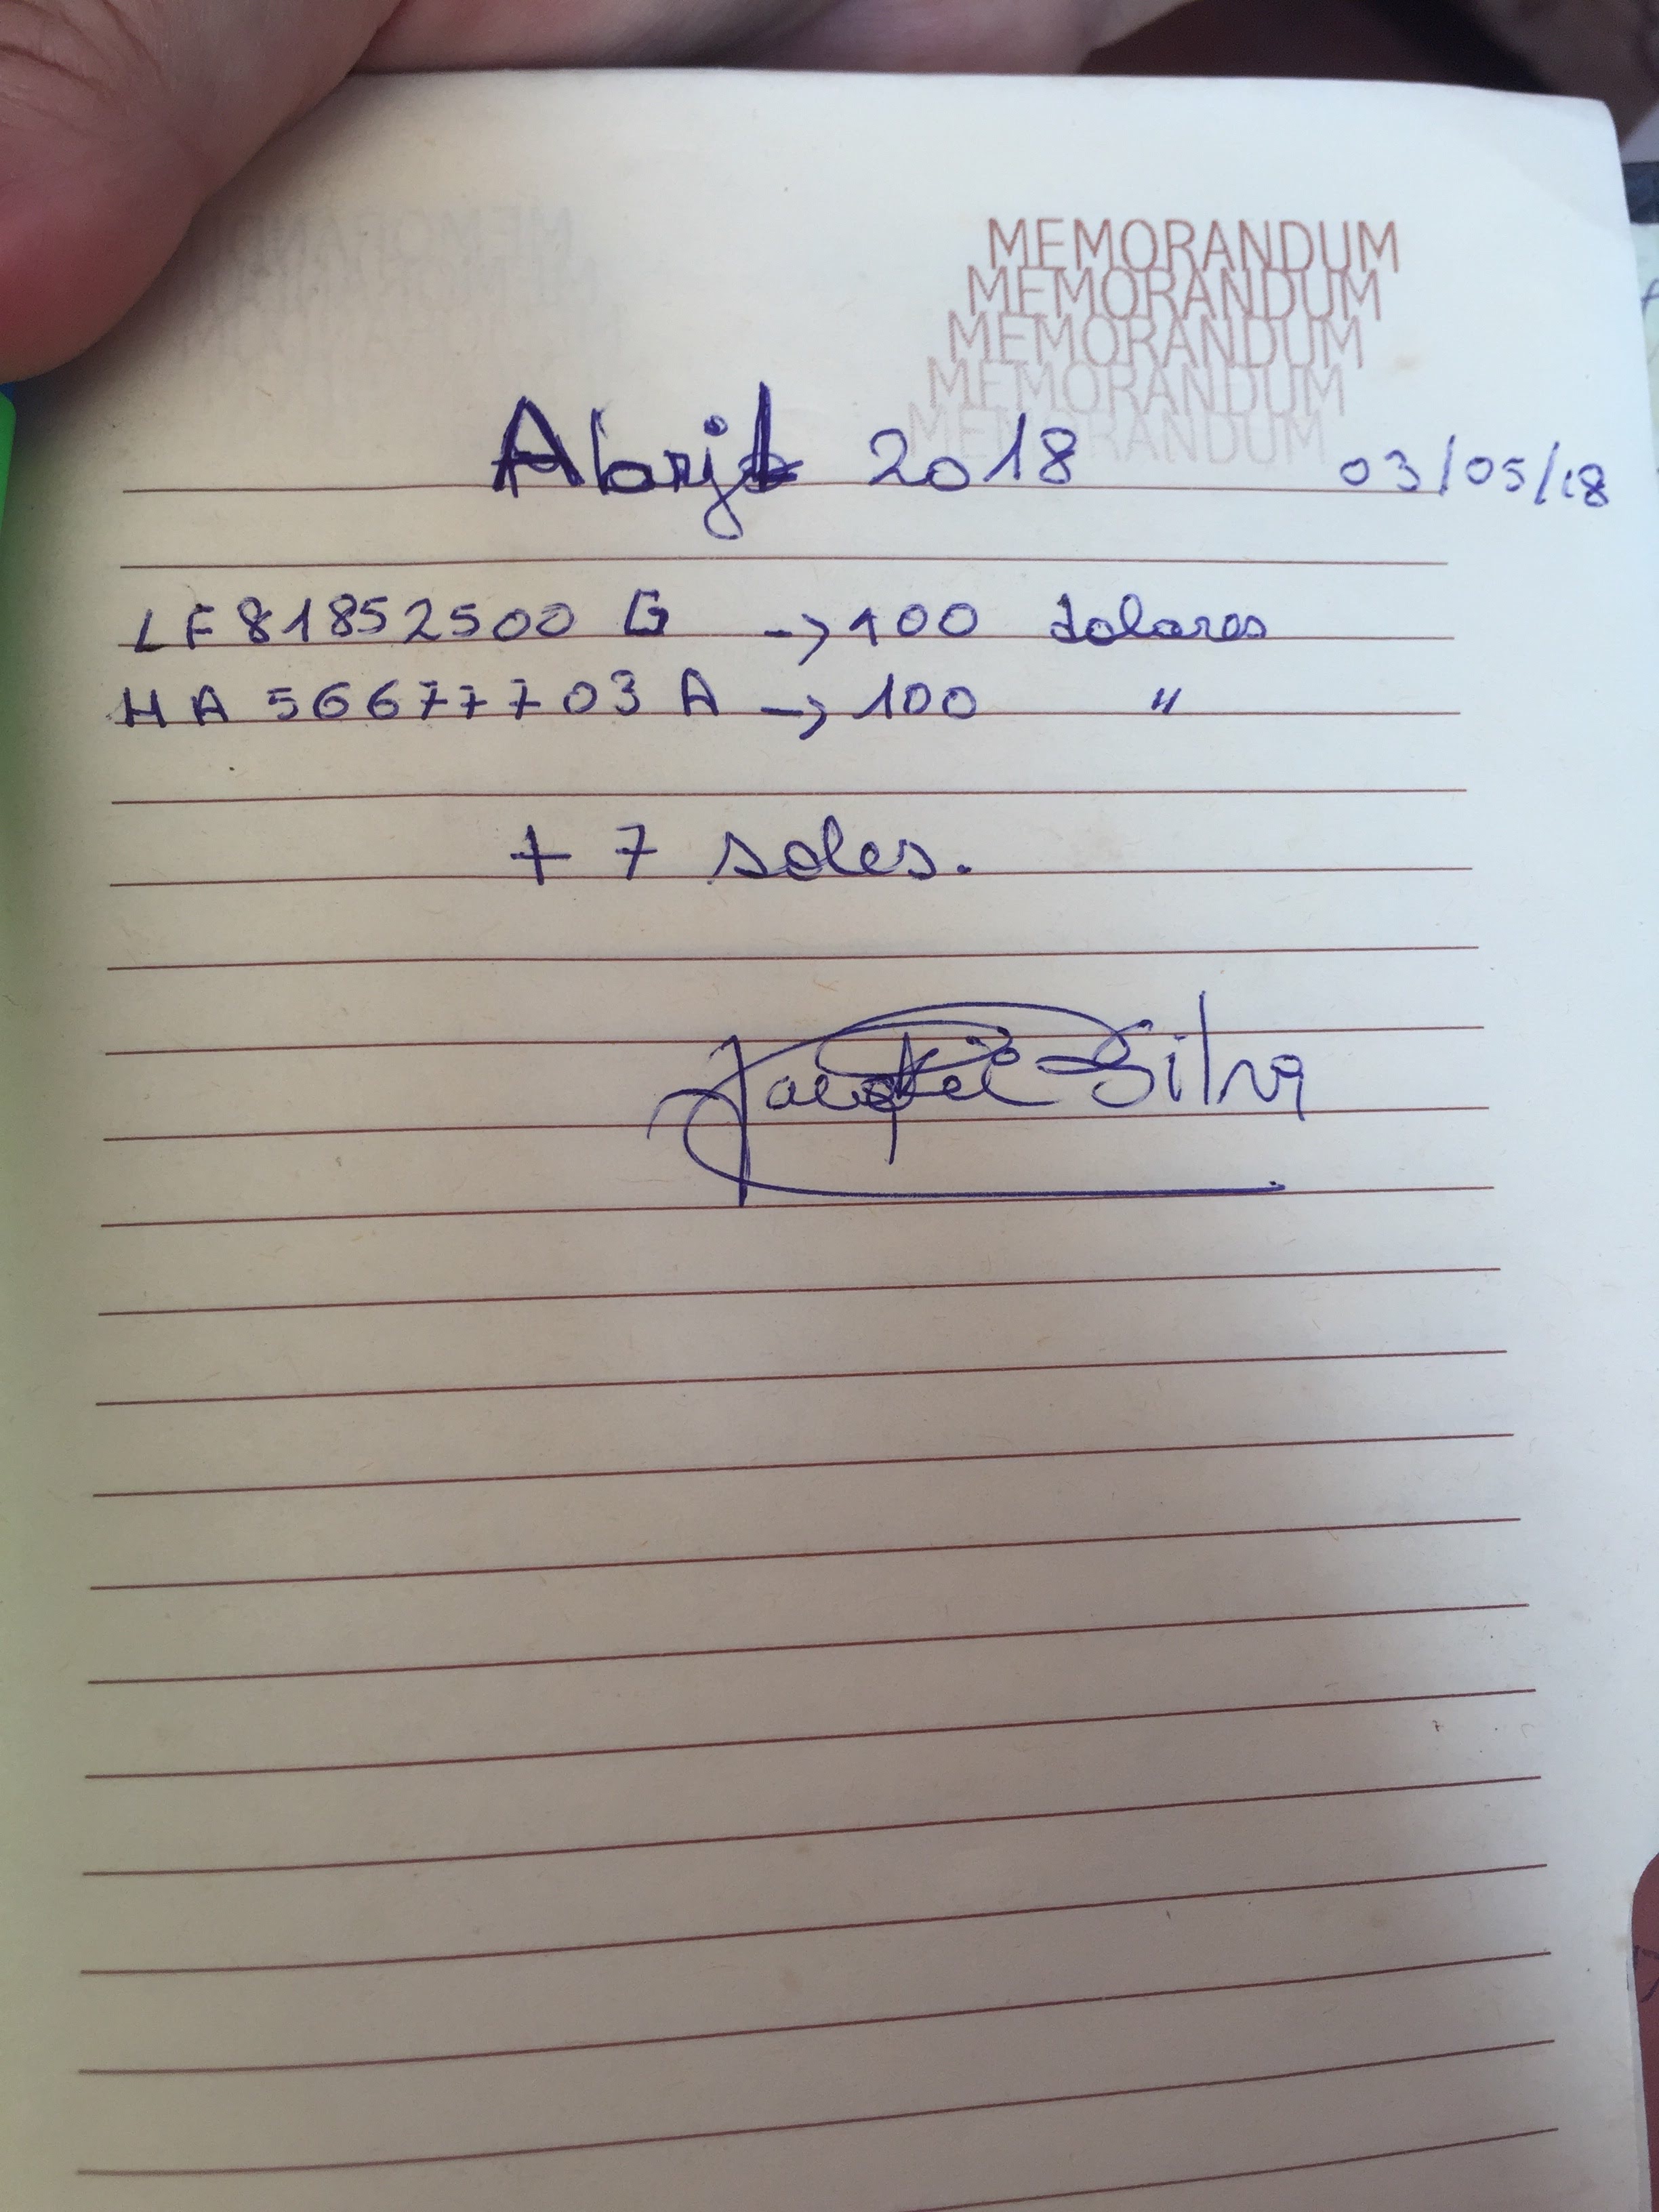 MEMORANDUM
MEMORANDUM
MEMORANDUM
MEMORANDUM
MEMORANDUM
Abril 2018 03/05/18
LF81852500 G -> 100 dolares
HA 56677703 A -> 100 "
+ 7 soles.
Silva